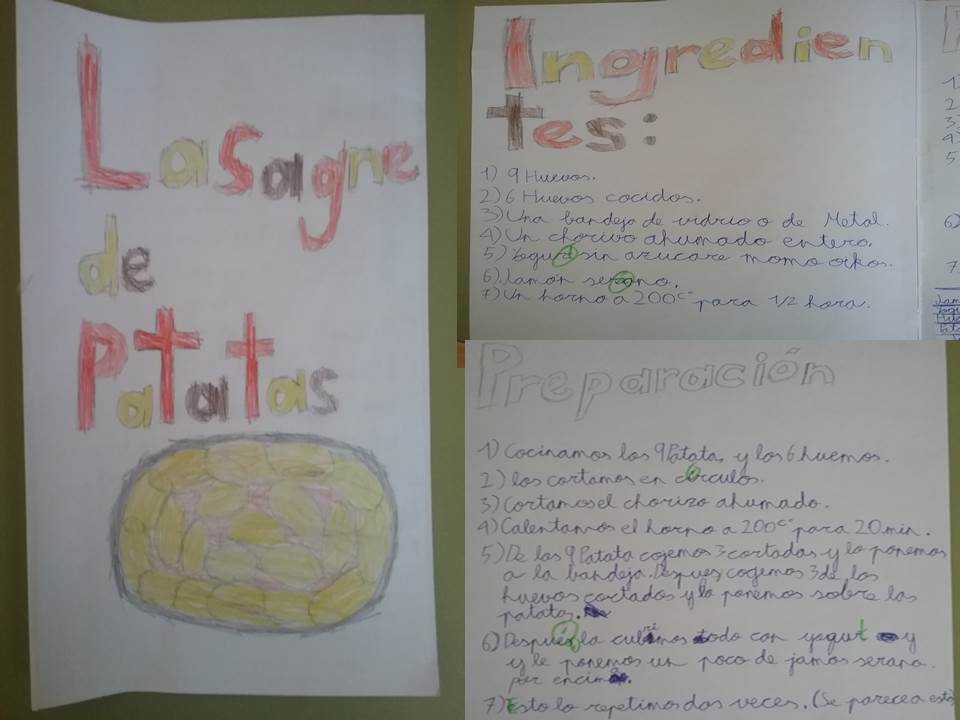 Lasagne
de
Patatas
Ingredien
tes:
1) 9 Huevos.
2) 6 Huevos cocidos.
3) Una bandeja de vidrio o de Metal.
4) Un chorivo ahumado entero.
5) Yogurt sin azucare momo oikos.
6) Jamon serano.
7) Un horno a 200c° para 1/2 hora.
1)
2
3)
4)
5
6)
7
Preparación
1) Cocinamos las 9 Patata y los 6 huemos.
2) los cortamos en círculos.
3) Cortamos el chorizo ahumado.
4) Calentamos el horno a 200c° para 20 min.
5) De los 9 Patata cojemos 3 cortadas y lo ponemos
a la bandeja. Despues cogemos 3 de los
huevos cortados y lo ponemos sobre las
patatas.
6) Después la cubrimos todo con yogurt y
y le ponemos un poco de jamos serano.
por encima.
7) Esto lo repetimos dos veces. (Se parecea esto